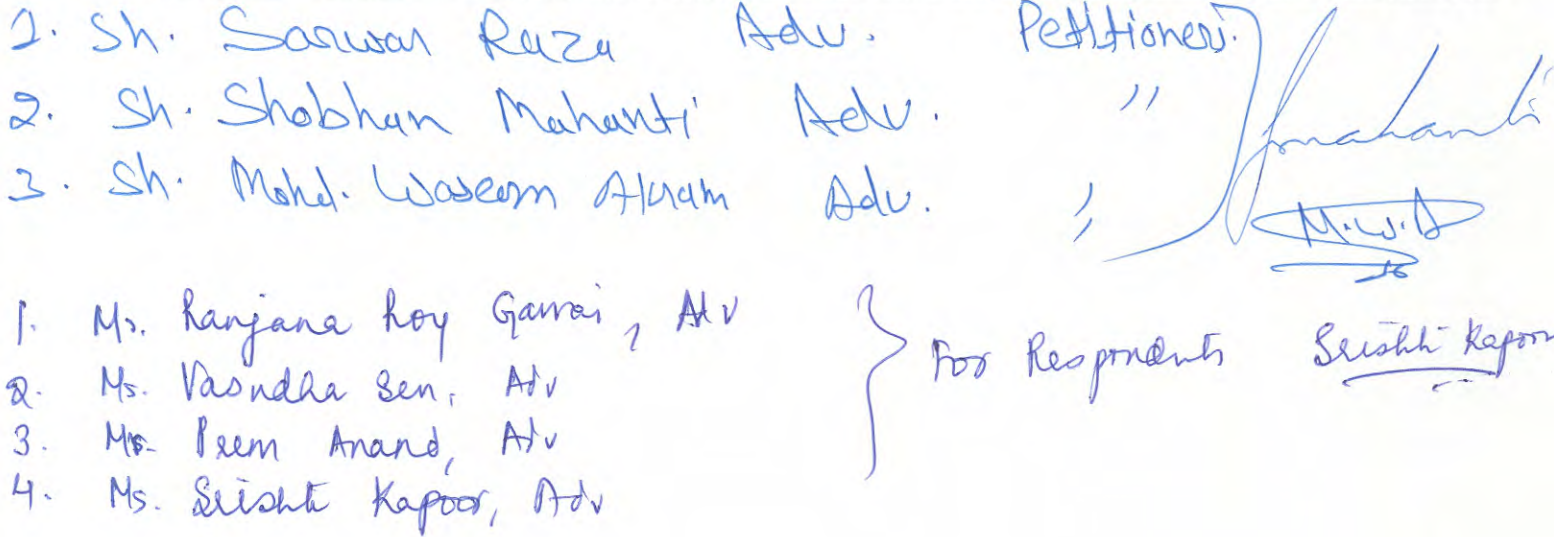 1. Sh. Sarwar Raza Adv. Petitioners.
2. Sh. Shobhan Mahanti Adv. "
3. Sh. Mohd. Waseem Akram Adv. "
Smahanti
M.W.A
1. Ms. Ranjana Roy Gawai, Adv
2. Ms. Vasudha Sen, Adv
3. Mr. Prem Anand, Adv
4. Ms. Srishti Kapoor, Adv
For Respondents Srishti Kapoor